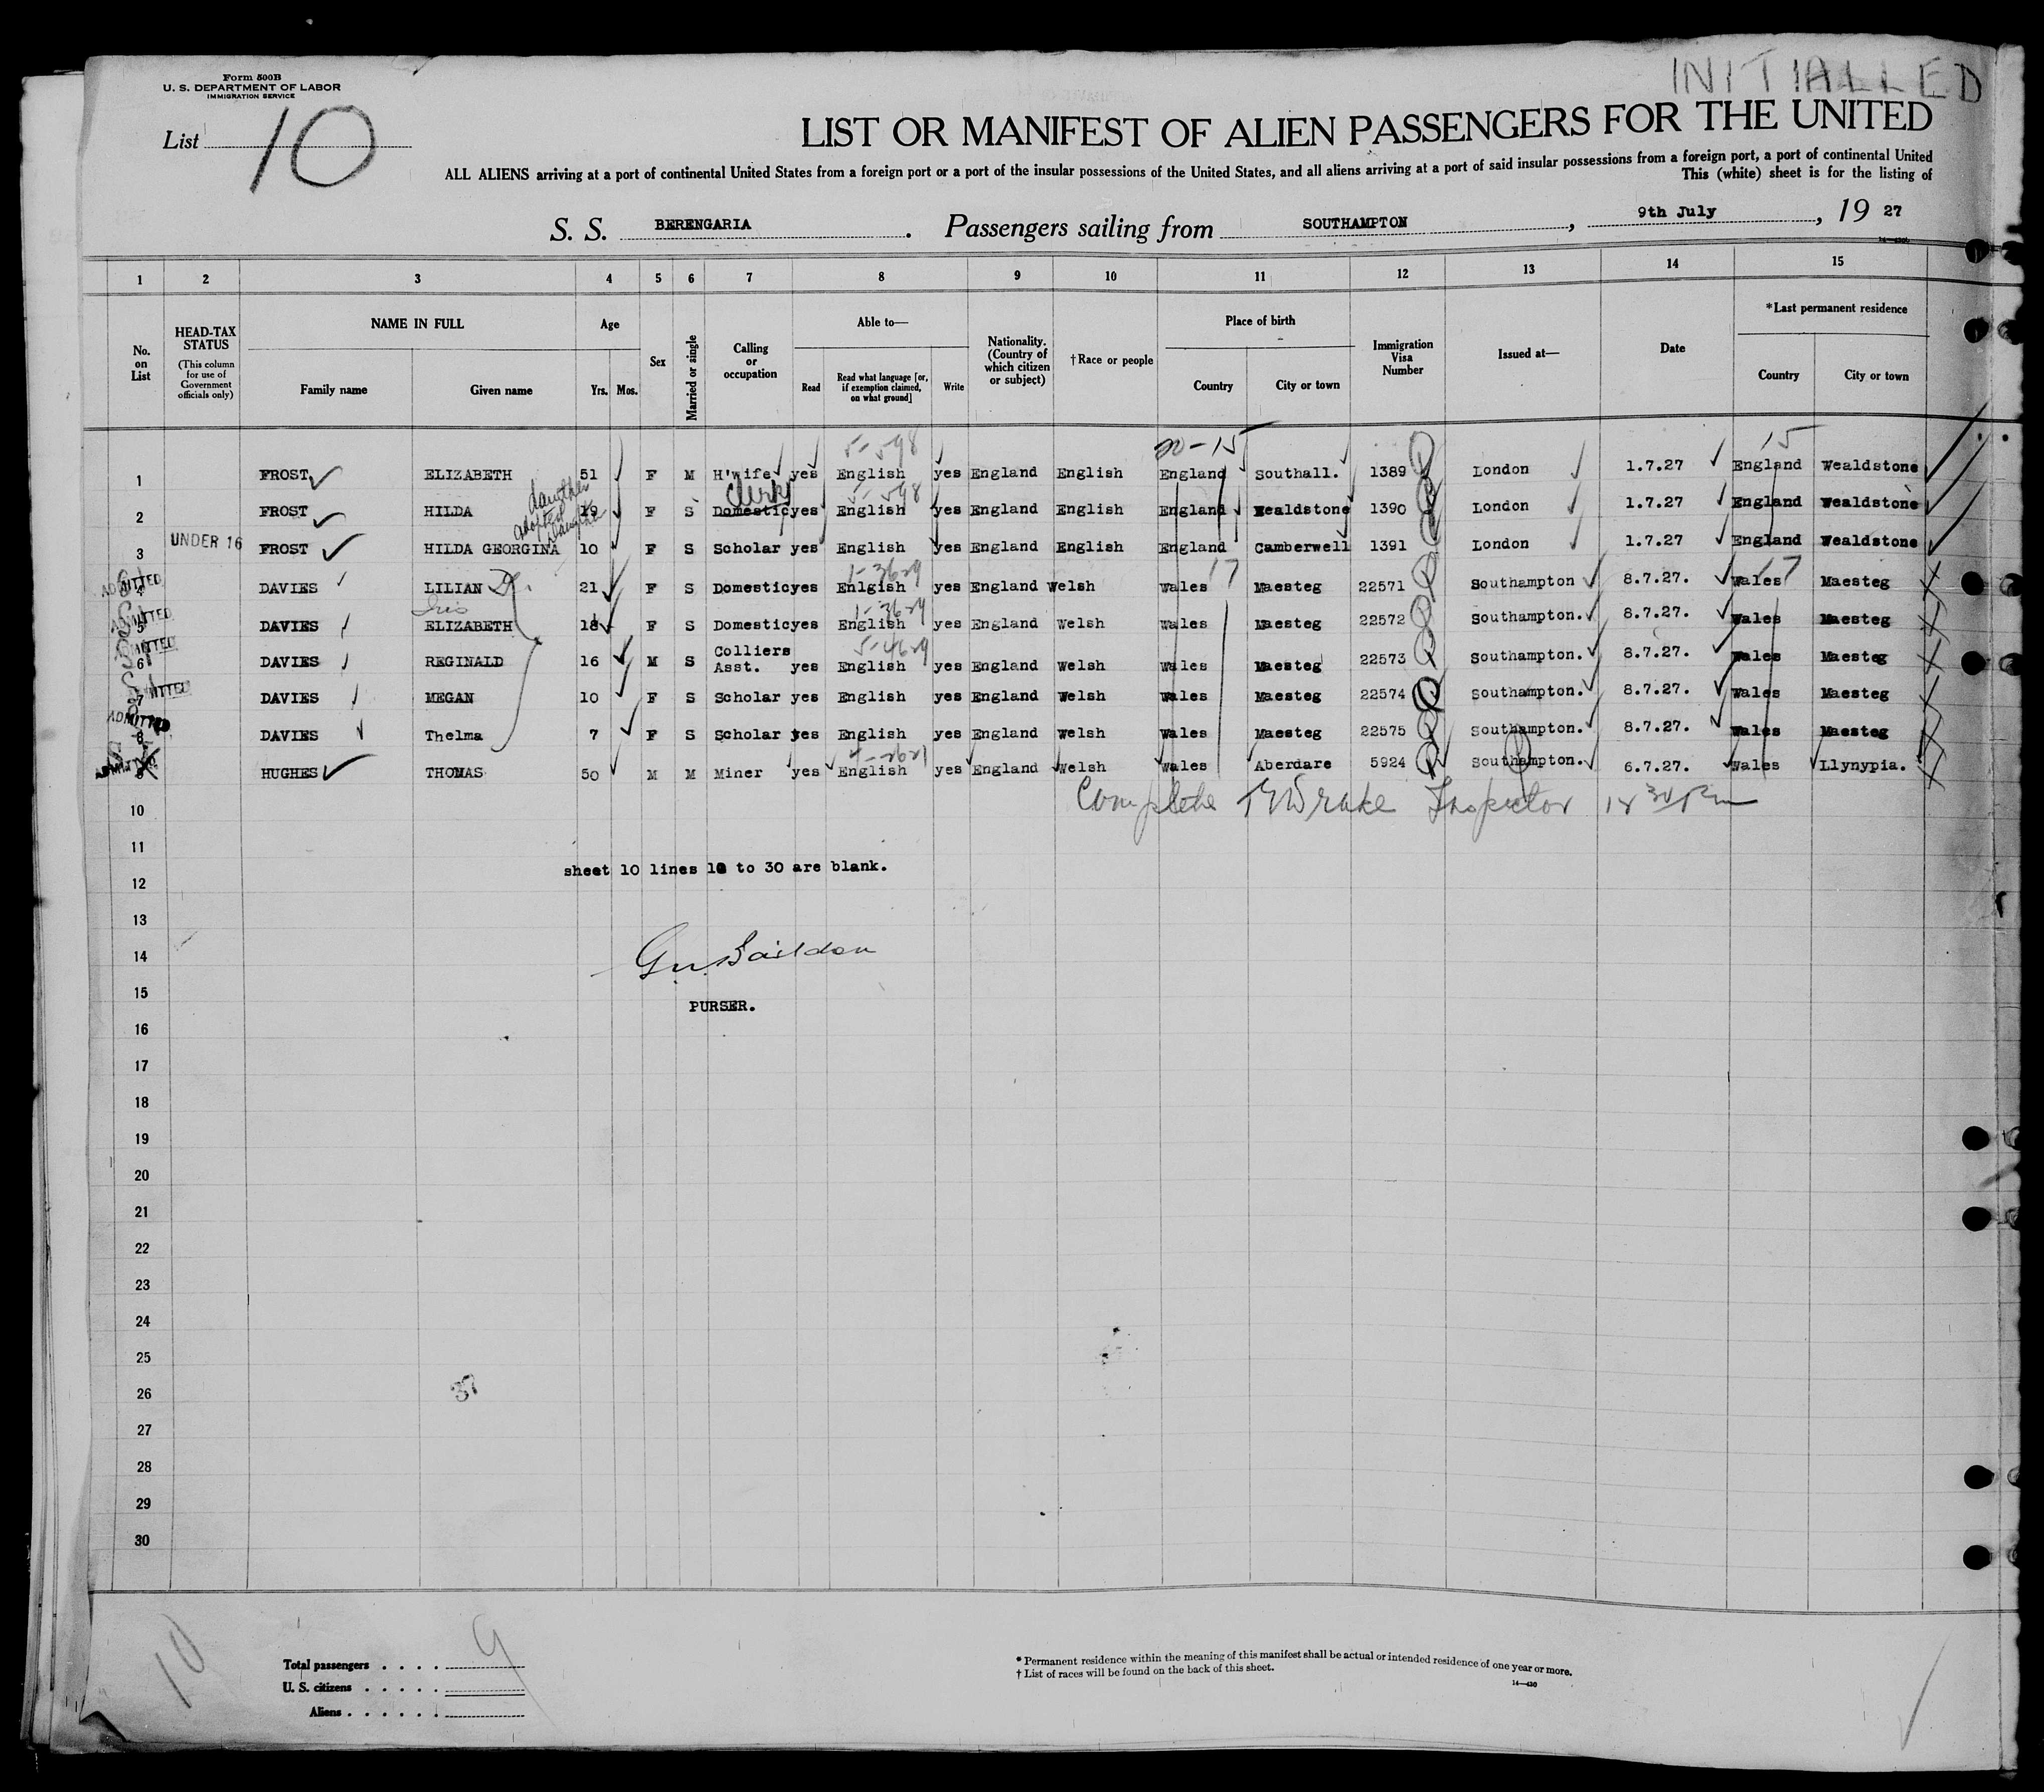 INITIALLED
Form 500B
U. S. DEPARTMENT OF LABOR
IMMIGRATION SERVICE
List 10
LIST OR MANIFEST OF ALIEN PASSENGERS FOR THE UNITED
ALL ALIENS arriving at a port of continental United States from a foreign port or a port of the insular possessions of the United States, and all aliens arriving at a port of said insular possessions from a foreign port, a port of continental United
This (white) sheet is for the listing of
S. S. BERENGARIA . Passengers sailing from SOUTHAMPTON , 9th July , 19 27
1 2 3 4 5 6 7 8 9 10 11 12 13 14 15
No. on List
HEAD-TAX STATUS
(This column for use of Government officials only)
NAME IN FULL
Family name Given name
Age
Yrs. Mos.
Sex
Married or single
Calling or occupation
Able to—
Read
Read what language [or, if exemption claimed, on what ground]
Write
Nationality. (Country of which citizen or subject)
†Race or people
Place of birth
Country City or town
Immigration Visa Number
Issued at—
Date
*Last permanent residence
Country City or town
5-598 20-15 15
1 FROST ELIZABETH 51 F M H'wife yes English yes England English England Southall. 1389 London 1.7.27 England Wealdstone
daughter Clerk 5-598
2 FROST HILDA 19 F S Domestic yes English yes England English England Wealdstone 1390 London 1.7.27 England Wealdstone
adopted daughter
3 UNDER 16 FROST HILDA GEORGINA 10 F S Scholar yes English yes England English England Camberwell 1391 London 1.7.27 England Wealdstone
1-3629 17 17
4 ADMITTED DAVIES LILIAN 21 F S Domestic yes Enlgish yes England Welsh Wales Maesteg 22571 Southampton 8.7.27. Wales Maesteg
Iris 1-3629
5 ADMITTED DAVIES ELIZABETH 18 F S Domestic yes English yes England Welsh Wales Maesteg 22572 Southampton. 8.7.27. Wales Maesteg
5-4629
6 ADMITTED DAVIES REGINALD 16 M S Colliers Asst. yes English yes England Welsh Wales Maesteg 22573 Southampton. 8.7.27. Wales Maesteg
7 ADMITTED DAVIES MEGAN 10 F S Scholar yes English yes England Welsh Wales Maesteg 22574 Southampton. 8.7.27. Wales Maesteg
8 ADMITTED DAVIES Thelma 7 F S Scholar yes English yes England Welsh Wales Maesteg 22575 Southampton. 8.7.27. Wales Maesteg
ADMITTED HUGHES THOMAS 50 M M Miner yes English yes England Welsh Wales Aberdare 5924 Southampton. 6.7.27. Wales Llynypia.
10 Complete Drake Inspector
11
sheet 10 lines 10 to 30 are blank.
12
13
14
15
PURSER.
16
17
18
19
20
21
22
23
24
25
26
37
27
28
29
30
10
Total passengers . . . . 9
U. S. citizens . . . . .
Aliens . . . . . .
* Permanent residence within the meaning of this manifest shall be actual or intended residence of one year or more.
† List of races will be found on the back of this sheet.
14—430